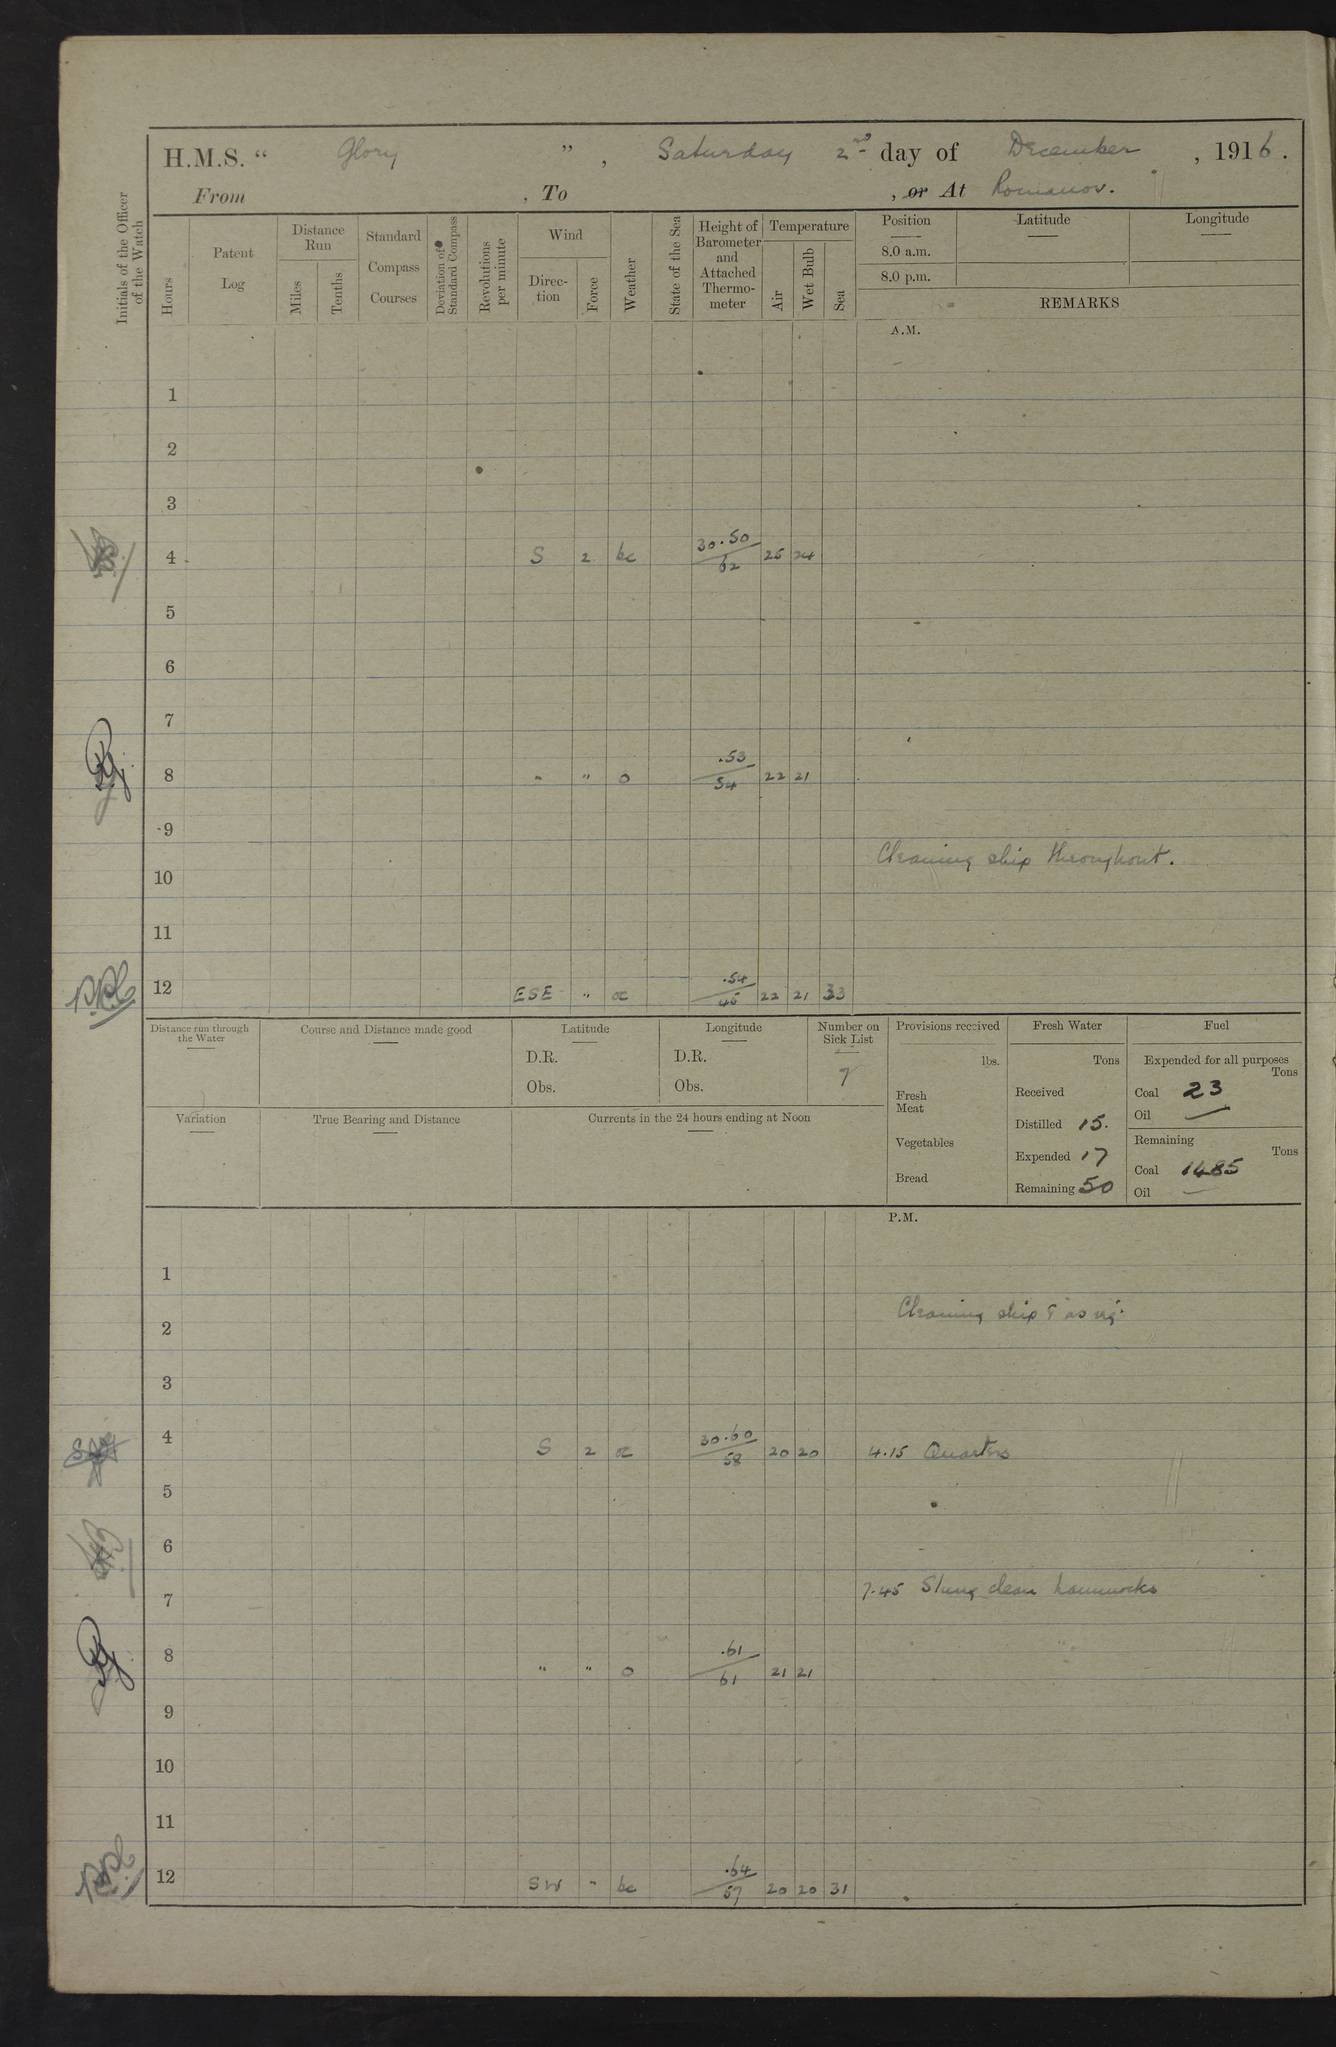 H.M.S. “ Glory ” , Saturday 2nd day of December , 1916 .
From , To , or At Romanov.
Initials of the Officer of the Watch
Hours
Patent Log
Distance Run
Miles
Tenths
Standard Compass Courses
Deviation of Standard Compass
Revolutions per minute
Wind
Direction
Force
Weather
State of the Sea
Height of Barometer and Attached Thermometer
Temperature
Air
Wet Bulb
Sea
Position Latitude Longitude
8.0 a.m.
8.0 p.m.
REMARKS
A.M.
1
2
3
4 S 2 bc 30.50/62 25 24
5
6
7
8 " " o .53/54 22 21
9
Cleaning ship throughout.
10
11
12 ESE " oc .54/45 22 21 33
Distance run through the Water
Course and Distance made good
Latitude
D.R.
Obs.
Longitude
D.R.
Obs.
Number on Sick List
7
Variation
True Bearing and Distance
Currents in the 24 hours ending at Noon
Provisions received
lbs.
Fresh Meat
Vegetables
Bread
Fresh Water
Tons
Received
Distilled 15.
Expended 17
Remaining 50
Fuel
Expended for all purposes
Tons
Coal 23
Oil —
Remaining
Tons
Coal 1485
Oil —
P.M.
1
Cleaning ship & as req.
2
3
4 S 2 oc 30.60/58 20 20 4.15 Quarters
5
6
7 7.45 Slung clean hammocks
8 " " o .61/61 21 21
9
10
11
12 SW " bc .64/57 20 20 31